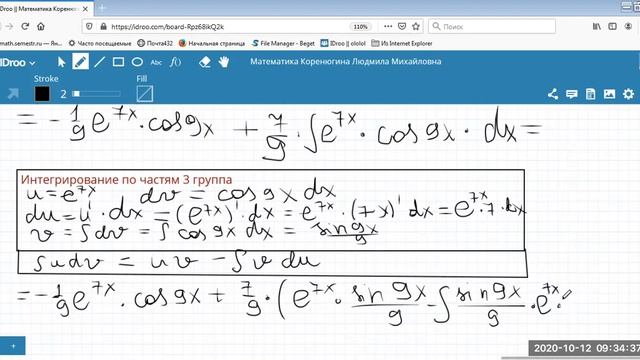 IDroo || Математика Коренюгин
https://idroo.com/board-Rpz68ikQ2k
110%
Поиск
math.semestr.ru
Часто посещаемые
Почта432
Начальная страница
File Manager - Beget
IDroo || ololol
Из Internet Explorer
IDroo
Abc
f(x)
Математика Коренюгина Людмила Михайловна
Stroke
Fill
2
= - 1/9 e^{7x} · cos9x + 7/9 · ∫ e^{7x} · cos9x · dx =
Интегрирование по частям 3 группа
u = e^{7x} dv = cos9x dx
du = u' · dx = (e^{7x})' dx = e^{7x} · (7x)' dx = e^{7x} · 7 · dx
v = ∫dv = ∫ cos9x dx = sin9x/9
∫udv = uv - ∫v du
= - 1/9 e^{7x} · cos9x + 7/9 · (e^{7x} · sin9x/9 - ∫ sin9x/9 · e^{7x} ·
2020-10-12 09:34:37